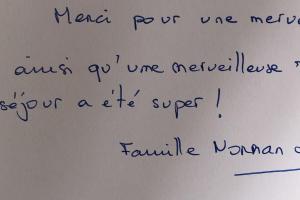 Merci pour une
ainsi qu'une merveilleuse
séjour a été super !
Famille Norman